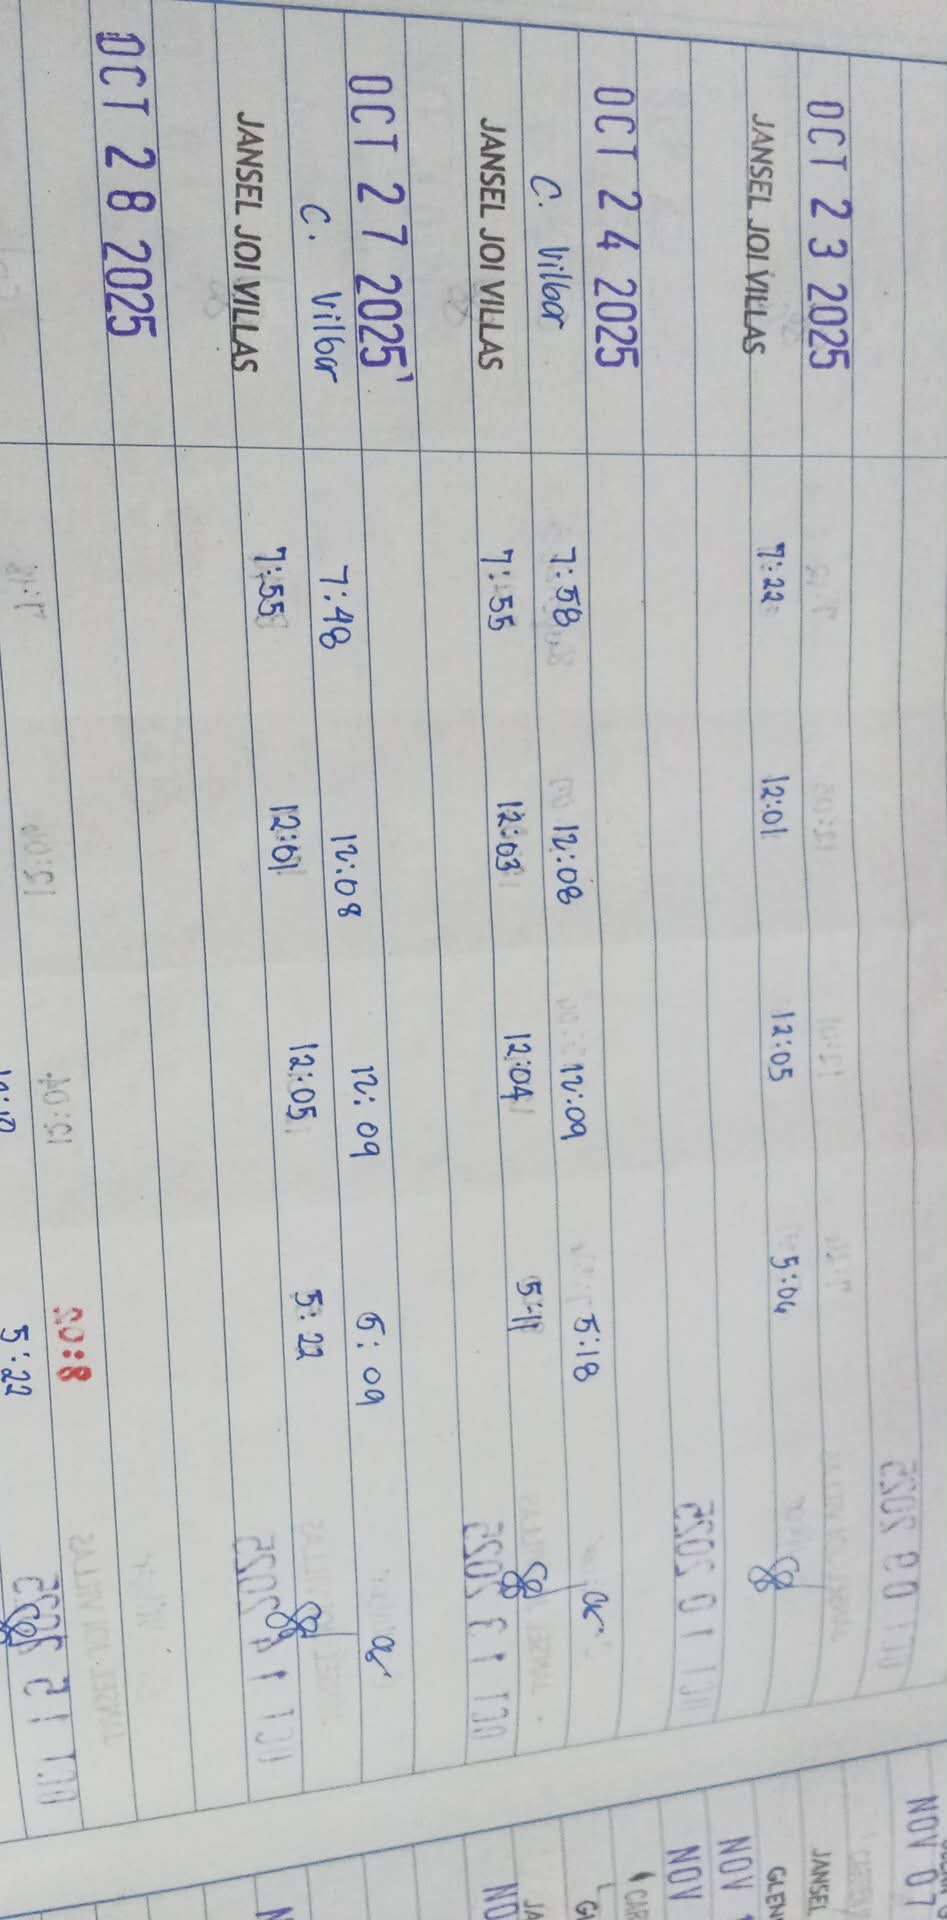 OCT 23 2025
JANSEL JOI VILLAS 7:22 12:01 12:05 5:04
OCT 24 2025
C. Vilbar 7:58 12:08 12:09 5:18
JANSEL JOI VILLAS 7:55 12:03 12:04 5:11
OCT 27 2025
C. Vilbar 7:48 12:08 12:09 6:09
JANSEL JOI VILLAS 7:55 12:01 12:05 5:22
OCT 28 2025
5:22
NOV 07
JANSEL
GLEN
NOV
NOV
CAR
GL
JA
NO
N